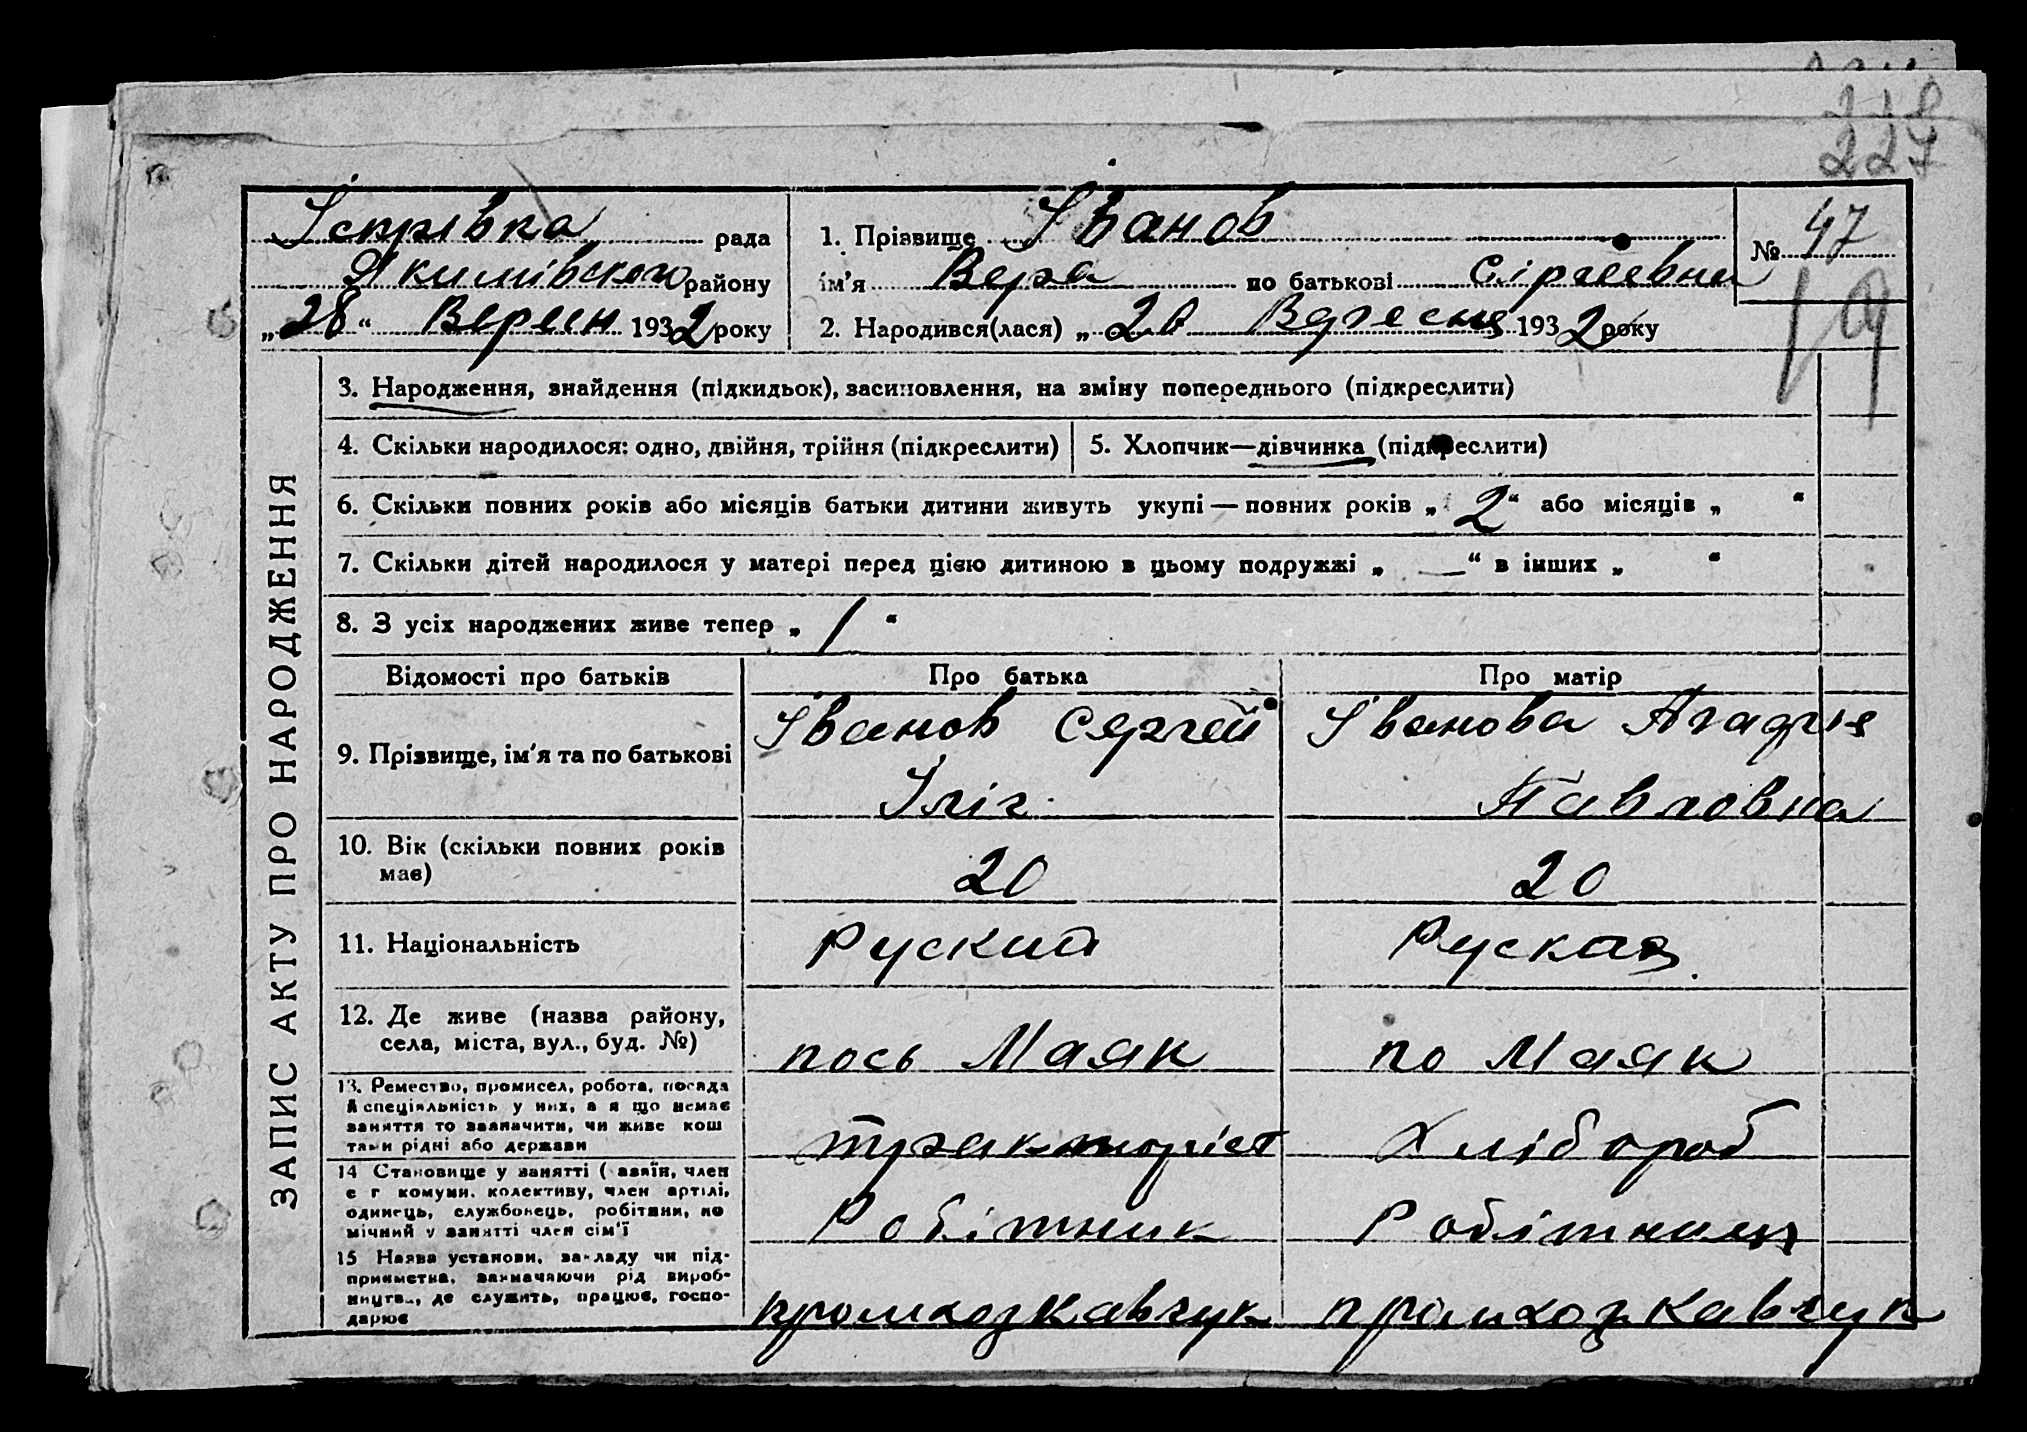 218
227
Істрівка рада
Якимівского району
„28“ Вересн 1932 року
1. Прізвище Іванов
ім'я Вера по батькові Сіргеевна
2. Народився(лася) „20 Вересня 1932 року
№ 47
19
ЗАПИС АКТУ ПРО НАРОДЖЕННЯ
3. Народження, знайдення (підкидьок), засиновлення, на зміну попереднього (підкреслити)
4. Скільки народилося: одно, двійня, трійня (підкреслити)
5. Хлопчик—дівчинка (підкреслити)
6. Скільки повних років або місяців батьки дитини живуть укупі — повних років „2“ або місяців „ “
7. Скільки дітей народилося у матері перед цією дитиною в цьому подружжі „ — “ в інших „ “
8. З усіх народжених живе тепер „ 1 “
Відомості про батьків
Про батька
Про матір
9. Прізвище, ім'я та по батькові
Іванов Сергей
Іліч
Іванова Агафія
Павловна
10. Вік (скільки повних років
має)
20
20
11. Національність
Руский
Руская
12. Де живе (назва району,
села, міста, вул., буд. №)
пось Маяк
по Маяк
13. Ремество, промисел, робота, посада
й спеціяльність у них, а я що немає
заняття то зазначити, чи живе кош
тами рідні або держави
тракторіст
Хлібороб
14 Становище у занятті ( хазяїн, член
с г комуни, колективу, член артілі,
одинець, службовець, робітник, по
мічний у занятті член сім'ї
Робітник
Робітниця
15 Назва установи, закладу чи під-
приємства, зазначаючи рід вироб-
ництва, де служить, працює, госпо-
дарює
промхоз Кавчук
промхоз Кавчук